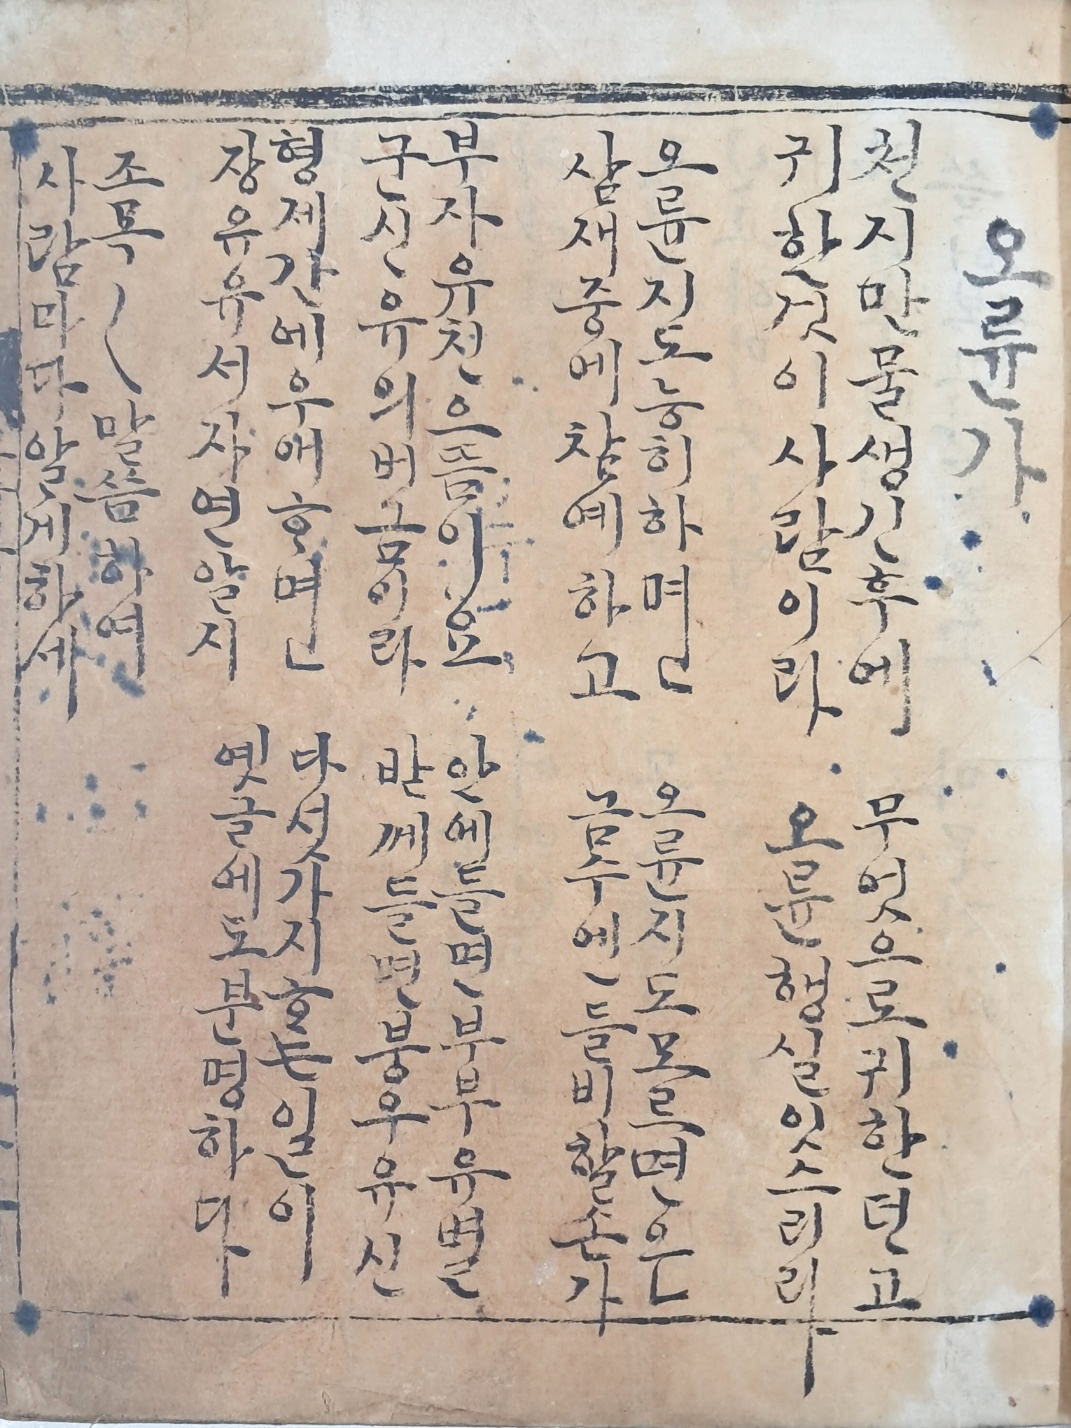 오륜가
천지만물생긴후에
귀한것이사람이라
무엇으로귀한던고
오륜행실잇스리라
오륜지도능히하면
삼재중에참예하고
오륜지도모르면은
금수엔들비할손가
부자유친으듬이요
군신유의버금이라
안에들면부부유별
받께들면붕우유신
형제간에우애ᄒᆞ면
장유유서자연알지
다섯가지ᄒᆞ는일이
옛글에도분명하다
조목〱말씀하여
사람마다알게하세